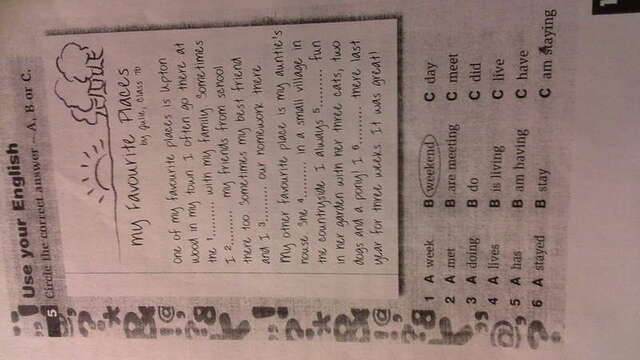 5 Use your English
Circle the correct answer – A, B or C.
My Favourite Places
by Julie, Class 7D
One of my favourite places is Upton
Wood in my town I often go there at
the .......... with my family. Sometimes
I 2.......... my friends from school
there too Sometimes my best friend
and I 3.......... our homework there
My other favourite place is my auntie's
house She 4.......... in a small village in
the countryside I always 5.......... fun
in her garden with her three cats, two
dogs and a pony! I 6.......... there last
year for three weeks It was great!
1 A week B weekend C day
2 A met B are meeting C meet
3 A doing B do C did
4 A lives B is living C live
5 A has B am having C have
6 A stayed B stay C am staying